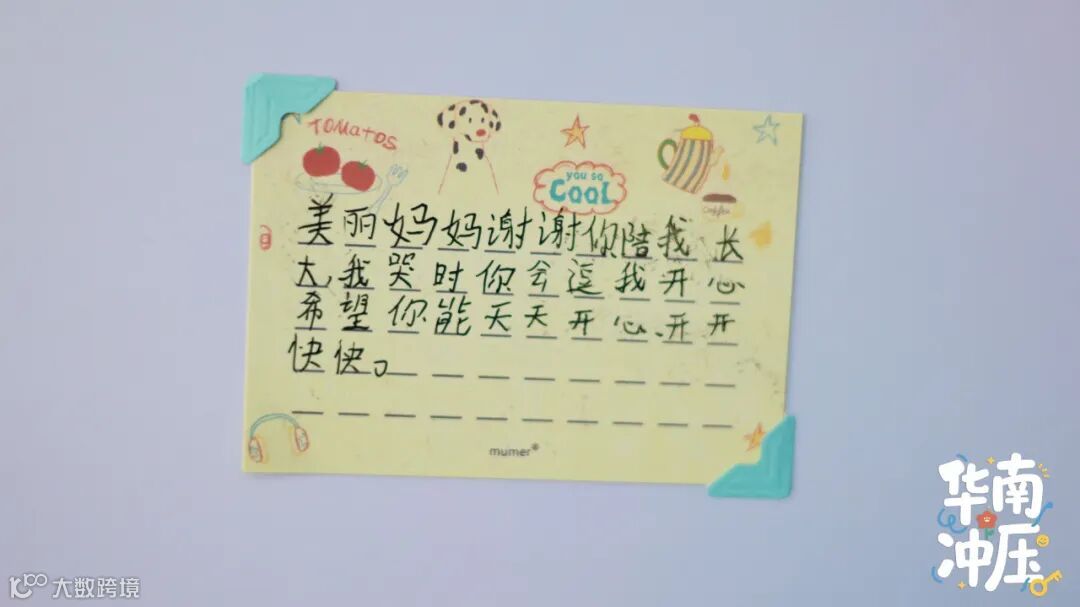 TOMATOS
you so
COOL
Coffee
美丽妈妈谢谢你陪我长
大,我哭时你会逗我开心
希望你能天天开心、开开
快快。
mumer®
华南
冲压
大数跨境